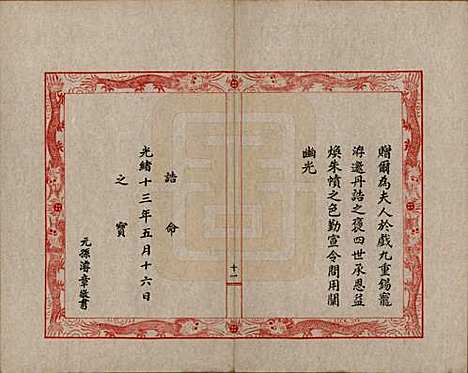 贈爾為夫人於戲九重錫寵
洊邀丹誥之褒四世承恩益
煥朱幩之色勤宣令問用闡
幽光
誥命
光緒十三年五月十六日
之寶
元孫濬章敬書
十一